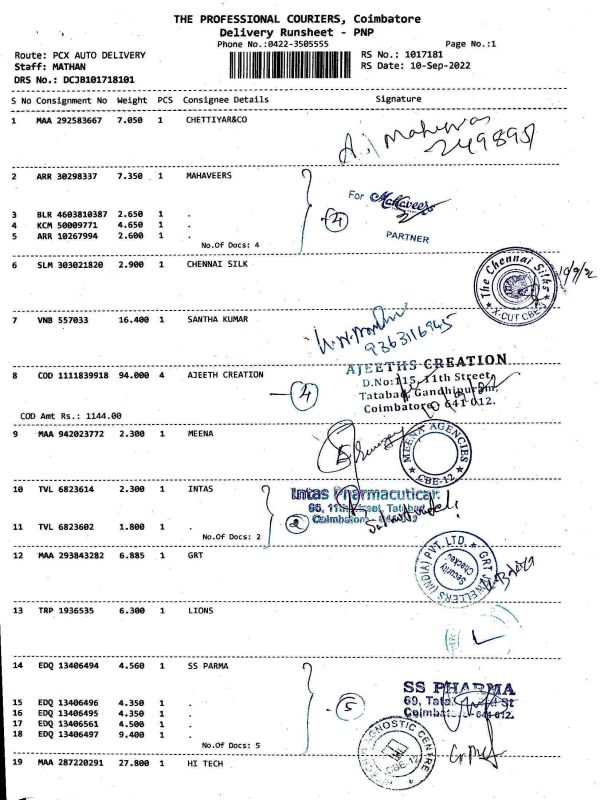 THE PROFESSIONAL COURIERS, Coimbatore
Delivery Runsheet - PNP
Phone No.:0422-3505555 Page No.:1
Route: PCX AUTO DELIVERY RS No.: 1017181
Staff: MATHAN RS Date: 10-Sep-2022
DRS No.: DCJB101718101
S No Consignment No Weight PCS Consignee Details Signature
1 MAA 292583667 7.050 1 CHETTIYAR&CO
2 ARR 30298337 7.350 1 MAHAVEERS
For Mahaveers
3 BLR 4603810387 2.650 1 .
4 KCM 50009771 4.650 1 . 4
5 ARR 10267994 2.600 1 . PARTNER
No.Of Docs: 4
6 SLM 303021820 2.900 1 CHENNAI SILK
The Chennai Silks
X-CUT CBE
7 VNB 557033 16.400 1 SANTHA KUMAR
9363116945
8 COD 1111839918 94.000 4 AJEETH CREATION 4
AJEETHS CREATION
D.No:115, 11th Street,
Tatabad, Gandhipuram,
Coimbatore 641 012.
COD Amt Rs.: 1144.00
9 MAA 942023772 2.300 1 MEENA
MEENA AGENCIES
CBE-12
10 TVL 6823614 2.300 1 INTAS
Intas Pharmaceutical
11 TVL 6823602 1.800 1 . 2
No.Of Docs: 2
12 MAA 293843282 6.885 1 GRT
GRT JEWELLERS (INDIA) PVT. LTD.
Security
Checked
13 TRP 1936535 6.300 1 LIONS
14 EDQ 13406494 4.560 1 SS PARMA
SS PHARMA
15 EDQ 13406496 4.350 1 .
16 EDQ 13406495 4.350 1 . 5
17 EDQ 13406561 4.500 1 .
18 EDQ 13406497 9.400 1 .
No.Of Docs: 5
19 MAA 287220291 27.800 1 HI TECH
CENTRE
CBE-12